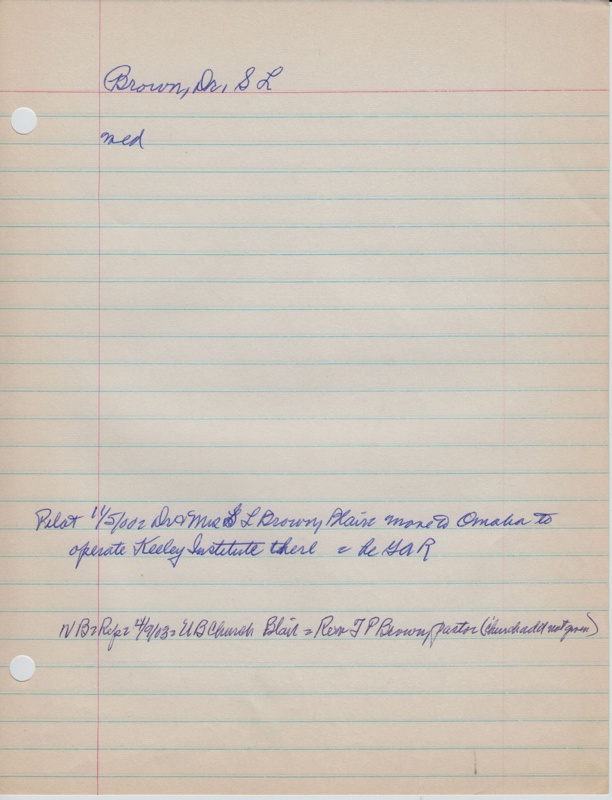 Brown, Dr, S L
med
Pilot 11/5/00= Dr & Mrs S L Brown, Blair= move to Omaha to
operate Keeley Institute there = he GAR
N B= Rep= 4/9/03= U B Church Blair = Rev J P Brown, pastor (church add not given)